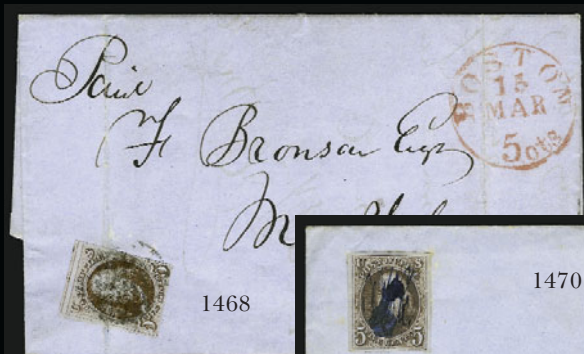 Paid
F Bronson Esq
BOSTON
15
MAR
5cts
1468
1470
5 5